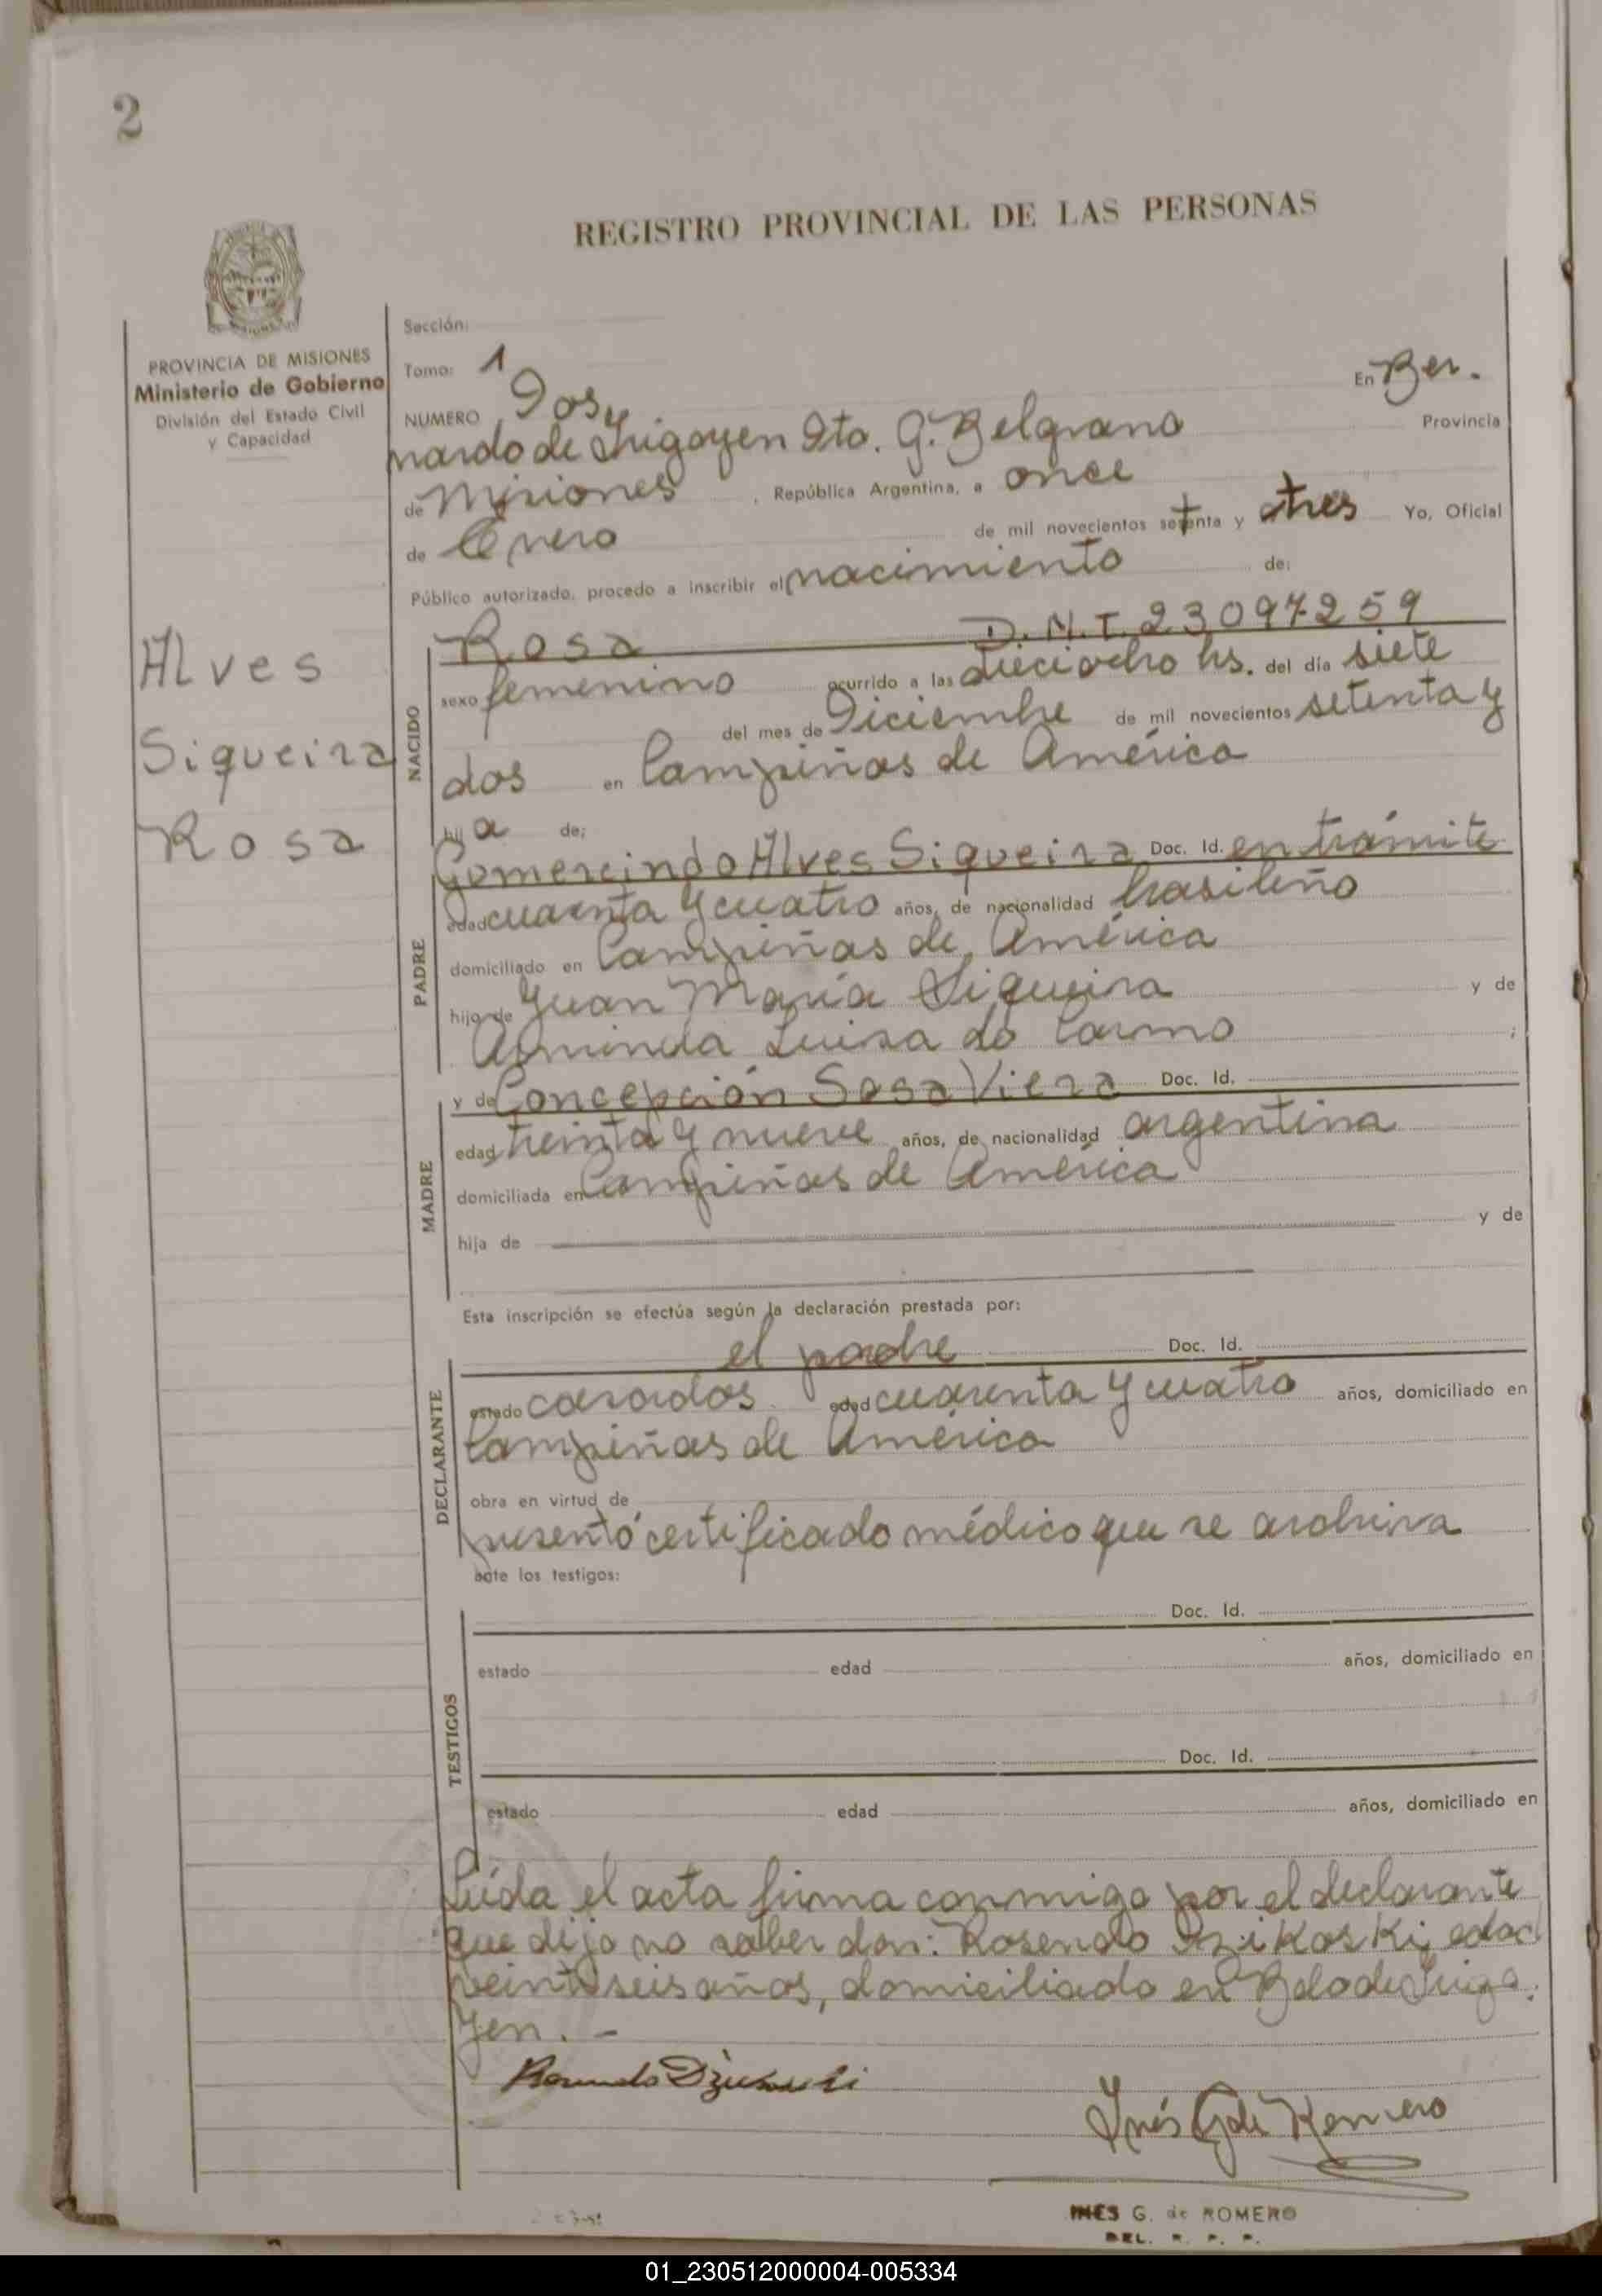 2
REGISTRO PROVINCIAL DE LAS PERSONAS
PROVINCIA DE MISIONES
Ministerio de Gobierno
División del Estado Civil
y Capacidad
Alves
Siqueira
Rosa
Sección:
Tomo: 1
En Ber.
NUMERO Dos
nardo de Irigoyen Dto. G. Belgrano Provincia
de Misiones, República Argentina, a once
de Enero de mil novecientos setenta y tres Yo, Oficial
Público autorizado, procedo a inscribir el nacimiento de:
NACIDO
Rosa D.N.I. 23097259
sexo femenino ocurrido a las dieciocho hs. del día siete
del mes de Diciembre de mil novecientos setenta y
dos en Campiñas de América
hija de:
PADRE
Gomercindo Alves Siqueira Doc. Id. en trámite
edad cuarenta y cuatro años, de nacionalidad brasileño
domiciliado en Campiñas de América
hijo de Juan María Siqueira y de
Arminda Luisa do Carmo ;
MADRE
y de Concepción Sosa Viera Doc. Id.
edad treinta y nueve años, de nacionalidad argentina
domiciliada en Campiñas de América
hija de y de
Esta inscripción se efectúa según la declaración prestada por:
DECLARANTE
el padre Doc. Id.
estado casados edad cuarenta y cuatro años, domiciliado en
Campiñas de América
obra en virtud de
presentó certificado médico que se archiva
ante los testigos:
TESTIGOS
Doc. Id.
estado edad años, domiciliado en
Doc. Id.
estado edad años, domiciliado en
Leída el acta firma conmigo por el declarante
que dijo no saber don: Rosendo edad
veintiseis años, domiciliado en Bdo de Irigo.
yen. -
Inés G de Romero
INES G. de ROMERO
DEL. R. P. P.
01_230512000004-005334